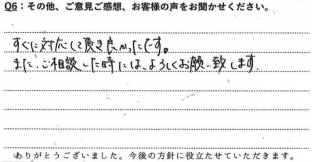 Q6：その他、ご意見ご感想、お客様の声をお聞かせください。
すぐに対応して頂き良かったです。
また、ご相談した時には、よろしくお願い致します。
ありがとうございました。今後の方針に役立たせていただきます。